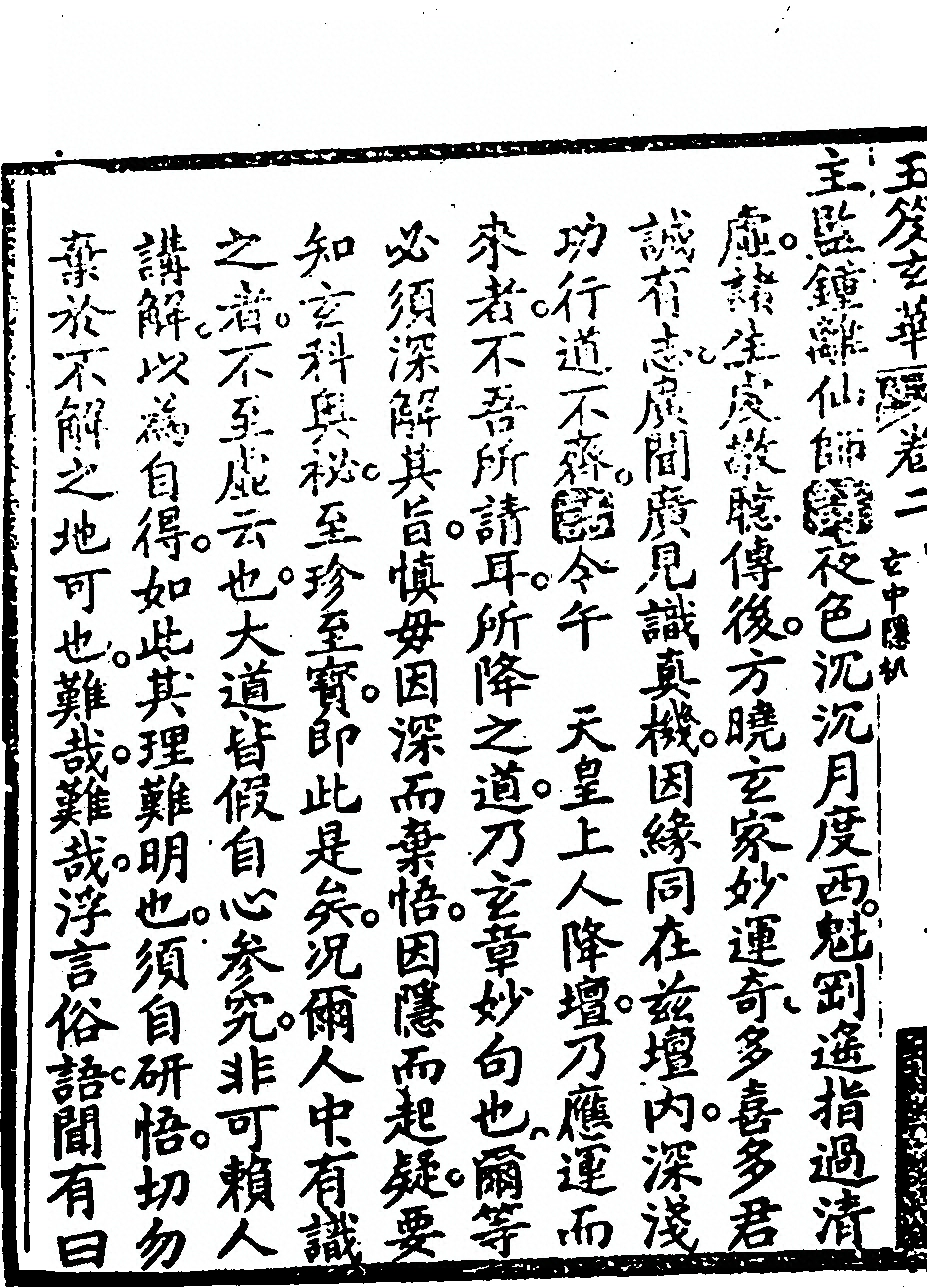 玉笈玄華 卷二 玄中隱機
主監鐘離仙師 夜色沉沉月度西。魁罡遙指過清
虛。諸生虔敬聽傳後。方曉玄家妙運奇、多喜多君
誠有志。廣聞廣見識真機。因緣同在茲壇內。深淺
功行道不齊。 今午 天皇上人降壇。乃應運而
來者。不吾所請耳。所降之道。乃玄章妙句也、爾等
必須深解其旨。慎毋因深而棄悟。因隱而起疑。要
知玄科奧秘。至珍至寶。即此是矣。況爾人中、有識
之者。不至虛云也。大道皆假自心參究。非可賴人
講解。以為自得。如此其理難明也。須自研悟。切勿
棄於不解之地可也。難哉。難哉。浮言俗語。聞有曰